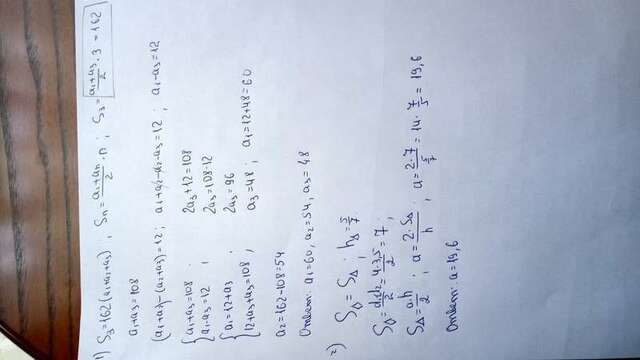 1) S₃=162(a₁+a₂+a₃) , Sₙ=(a₁+aₙ)/2·n ; S₃=(a₁+a₃)/2·3=162
a₁+a₃=108
(a₁+a₂)-(a₂+a₃)=12; a₁+a₂-a₂-a₃=12 ; a₁-a₃=12
{a₁+a₃=108 2a₃+12=108
a₁-a₃=12 ; 2a₃=108-12
{a₁=12+a₃ 2a₃=96
12+a₃+a₃=108 , a₃=48 ; a₁=12+48=60
a₂=162-108=54
Ответ: a₁=60, a₂=54, a₃=48
2) S◊=S△ ; h△=5/7
S◊=d₁d₂/2=4·3,5/2=7 ;
S△=a·h/2 ; a=2·S△/h ; a=2·7/(5/7)=14·7/5=19,6
Ответ: a=19,6